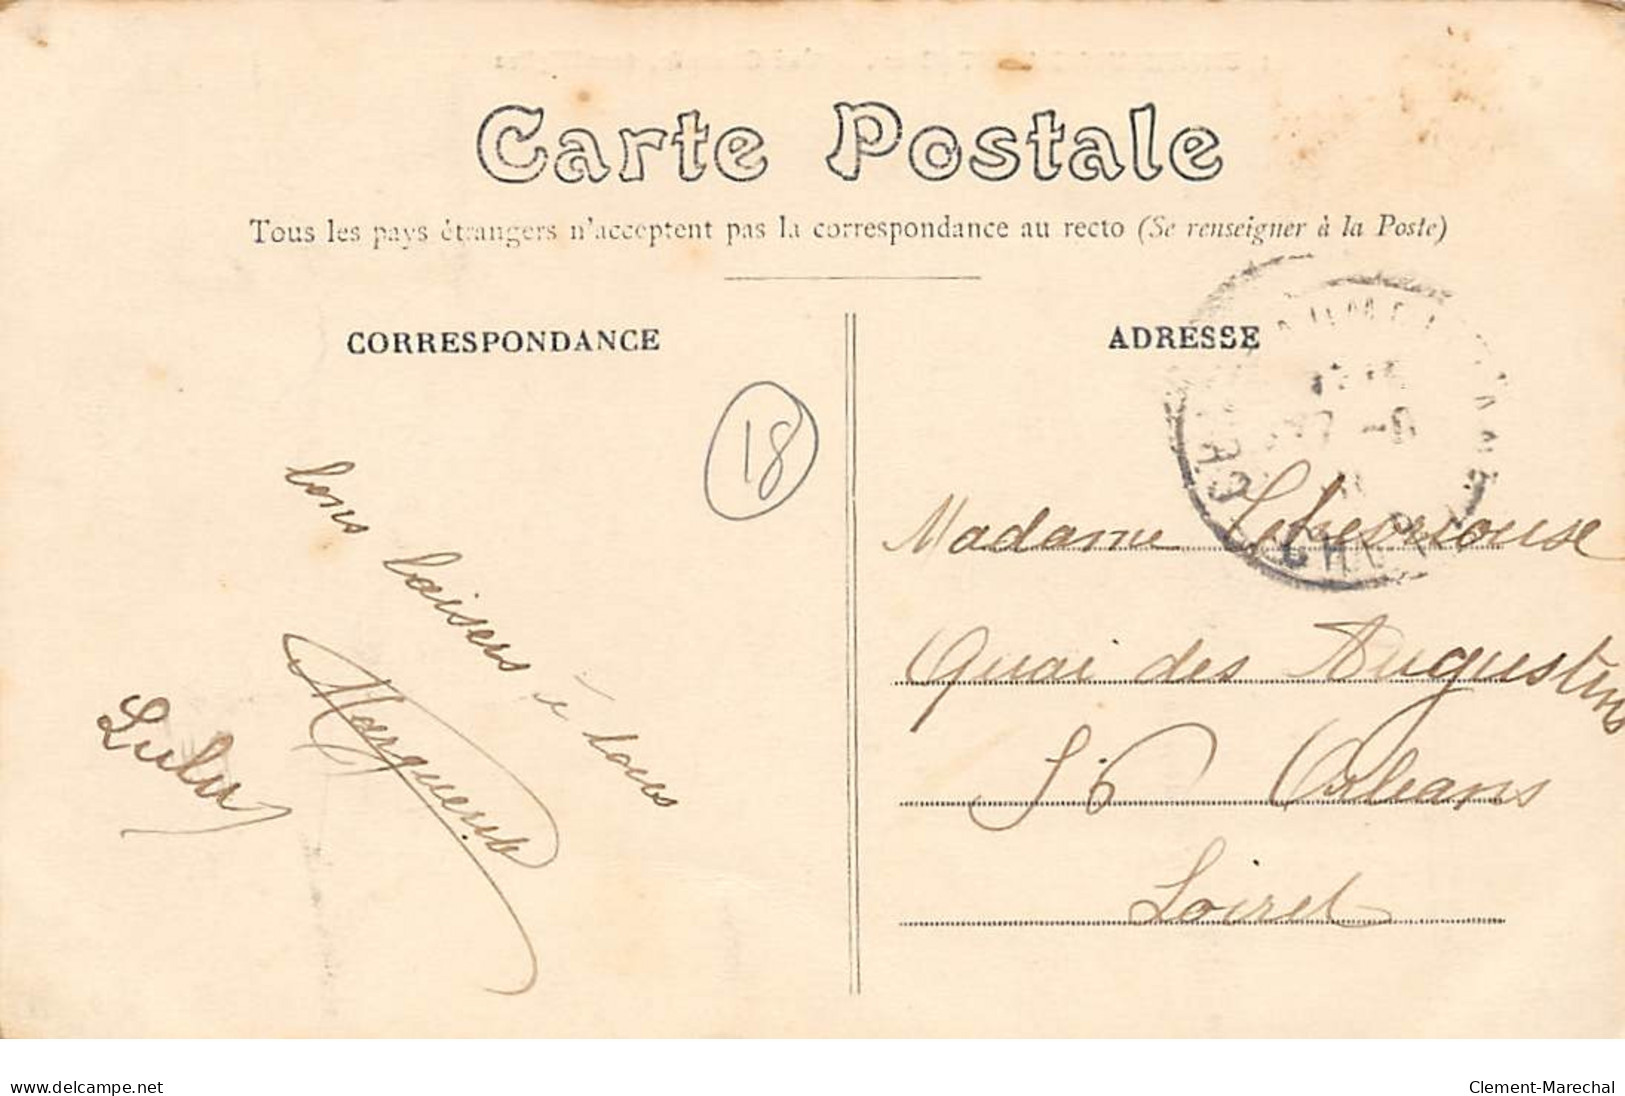 Carte Postale
Tous les pays étrangers n'acceptent pas la correspondance au recto (Se renseigner à la Poste)
CORRESPONDANCE
ADRESSE
18
bons baisers à tous
Marguerite
Lulu
Madame
Quai des Augustins
Orléans
Loiret
CHER
www.delcampe.net
Clement-Marechal